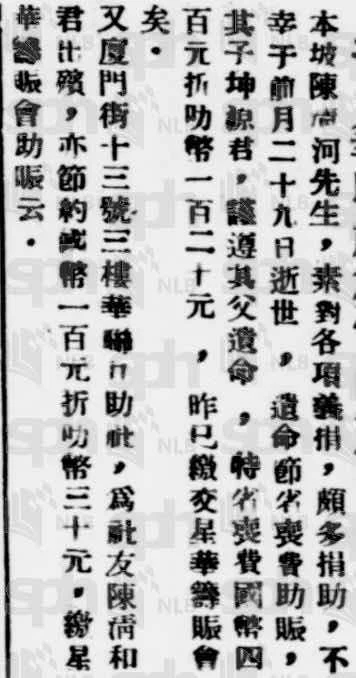 本坡陳河先生,素對各項義捐,頗多捐助,不
幸于前月二十九日逝世,遺命節省喪費助賑,
其子坤源君,謹遵其父遺命,特省喪費國幣四
百元折叻幣一百二十元,昨已繳交星華籌賑會
矣。
又廈門街十三號三樓華聯互助社,爲社友陳淸和
君出殯,亦節約國幣一百元折叻幣三十元,繳星
華籌賑會助賑云。